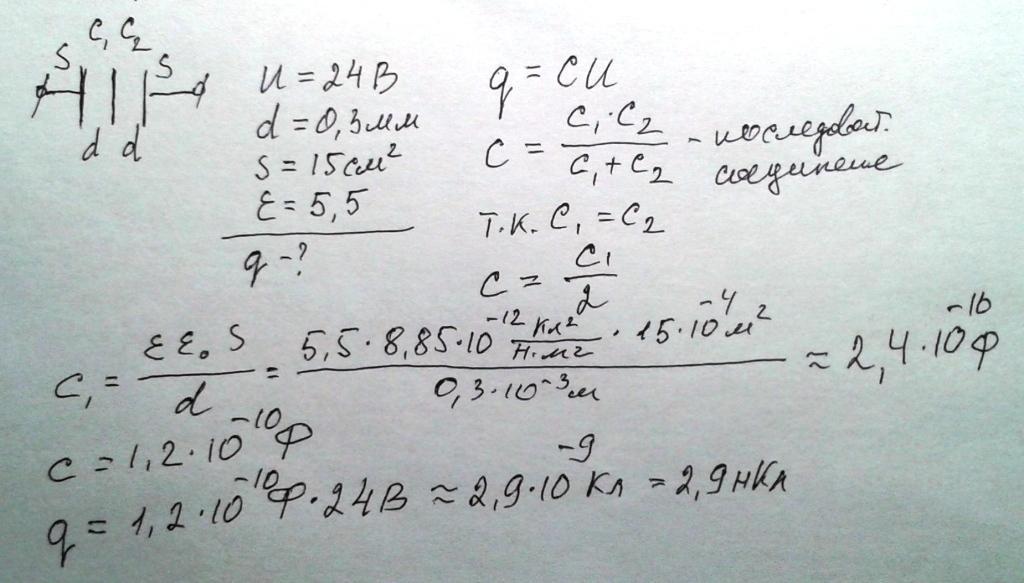 C₁ C₂
S S
d d
U = 24В
d = 0,3мм
S = 15см²
ε = 5,5
q - ?
q = CU
C = C₁·C₂ / C₁+C₂ - последоват. соединение
т.к. C₁ = C₂
C = C₁ / 2
C₁ = εε₀S / d = 5,5·8,85·10⁻¹² Кл²/Н·м² · 15·10⁻⁴м² / 0,3·10⁻³м ≈ 2,4·10⁻¹⁰Ф
C = 1,2·10⁻¹⁰Ф
q = 1,2·10⁻¹⁰Ф·24В ≈ 2,9·10⁻⁹Кл = 2,9нКл